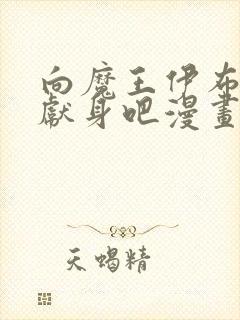 向魔王伊布
獻身吧漫畫
天蝎精